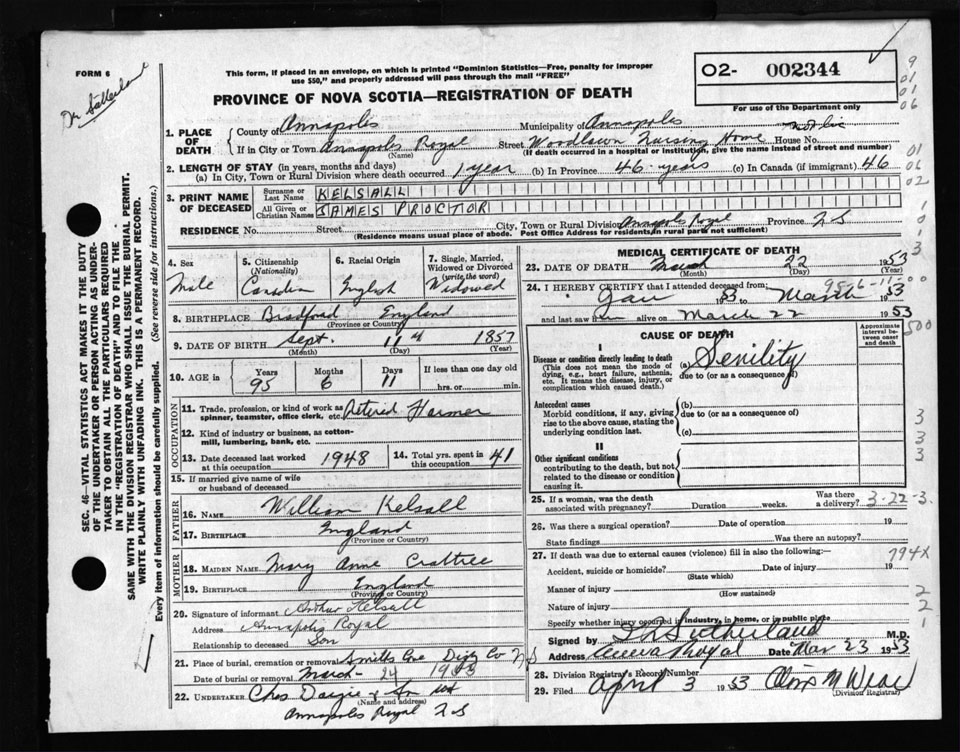 FORM 6
Dr Sutherland
This form, if placed in an envelope, on which is printed "Dominion Statistics—Free, penalty for improper
use $50," and properly addressed will pass through the mail "FREE"
O2- 002344
For use of the Department only
PROVINCE OF NOVA SCOTIA—REGISTRATION OF DEATH
1. PLACE OF DEATH
County of Annapolis Municipality of Annapolis
If in City or Town Annapolis Royal Street Nursing Home House No.
(Name) (If death occurred in a hospital or institution, give the name instead of street and number)
2. LENGTH OF STAY (in years, months and days)
(a) In City, Town or Rural Division where death occurred 1 year (b) In Province 46 years (c) In Canada (if immigrant) 46
3. PRINT NAME OF DECEASED
Surname or Last Name KELSALL
All Given or Christian Names JAMES PROCTOR
RESIDENCE No. Street City, Town or Rural Division Annapolis Royal Province N S
(Residence means usual place of abode. Post Office Address for residents in rural parts not sufficient)
4. Sex
Male
5. Citizenship (Nationality)
Canadian
6. Racial Origin
English
7. Single, Married, Widowed or Divorced (write the word)
Widowed
8. BIRTHPLACE Bradford England
(Province or Country)
9. DATE OF BIRTH Sept. 11th 1857
(Month) (Day) (Year)
10. AGE in Years Months Days If less than one day old
95 6 11 hrs. or min.
OCCUPATION
11. Trade, profession, or kind of work as spinner, teamster, office clerk, etc. Retired Farmer
12. Kind of industry or business, as cotton-mill, lumbering, bank, etc.
13. Date deceased last worked at this occupation 1948
14. Total yrs. spent in this occupation 41
15. If married give name of wife or husband of deceased
FATHER
16. NAME William Kelsall
17. BIRTHPLACE England
(Province or Country)
MOTHER
18. MAIDEN NAME Mary Anne Crabtree
19. BIRTHPLACE England
(Province or Country)
20. Signature of informant Arthur Kelsall
Address Annapolis Royal
Relationship to deceased Son
21. Place of burial, cremation or removal Smiths Cove Digby Co N S
Date of burial or removal March 24 1953
22. UNDERTAKER Chas Dargie & Son Ltd
(Name and address)
Annapolis Royal N S
MEDICAL CERTIFICATE OF DEATH
23. DATE OF DEATH March 22 1953
(Month) (Day) (Year)
95-6-11-00
24. I HEREBY CERTIFY that I attended deceased from:
Jan 53 to March 1953
and last saw h alive on March 22 1953
CAUSE OF DEATH
Approximate interval between onset and death
I
Disease or condition directly leading to death
(This does not mean the mode of dying, e.g., heart failure, asthenia, etc. It means the disease, injury, or complication which caused death.)
(a) Senility
due to (or as a consequence of)
Antecedent causes
Morbid conditions, if any, giving rise to the above cause, stating the underlying condition last.
(b)
due to (or as a consequence of)
(c)
II
Other significant conditions
contributing to the death, but not related to the disease or condition causing it.
25. If a woman, was the death associated with pregnancy? Duration weeks. Was there a delivery?
3-22-3
26. Was there a surgical operation? Date of operation 19
State findings Was there an autopsy?
27. If death was due to external causes (violence) fill in also the following:—
794X
Accident, suicide or homicide? Date of injury 19
(State which)
Manner of injury
(How sustained)
Nature of injury
Specify whether injury occurred in industry, in home, or in public place
Signed by Sutherland M.D.
Address Annap Royal Date Mar 23 1953
28. Division Registrar's Record Number
29. Filed April 3 1953
(Division Registrar)
SEC. 46—VITAL STATISTICS ACT MAKES IT THE DUTY
OF THE UNDERTAKER OR PERSON ACTING AS UNDER-
TAKER TO OBTAIN ALL THE PARTICULARS REQUIRED
IN THE "REGISTRATION OF DEATH" AND TO FILE THE
SAME WITH THE DIVISION REGISTRAR WHO SHALL ISSUE THE BURIAL PERMIT.
WRITE PLAINLY WITH UNFADING INK. THIS IS A PERMANENT RECORD.
Every item of information should be carefully supplied. (See reverse side for instructions.)